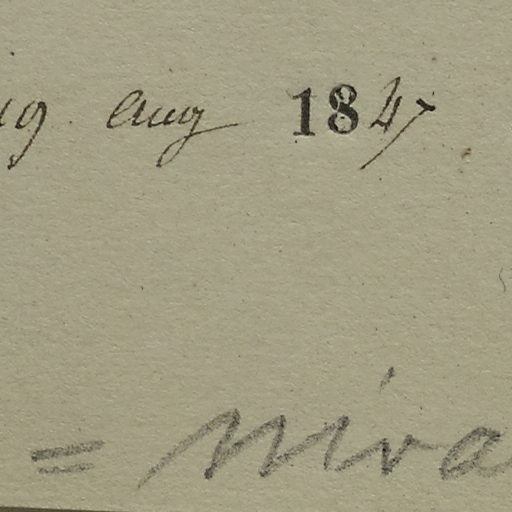 19 aug 1847
= niva